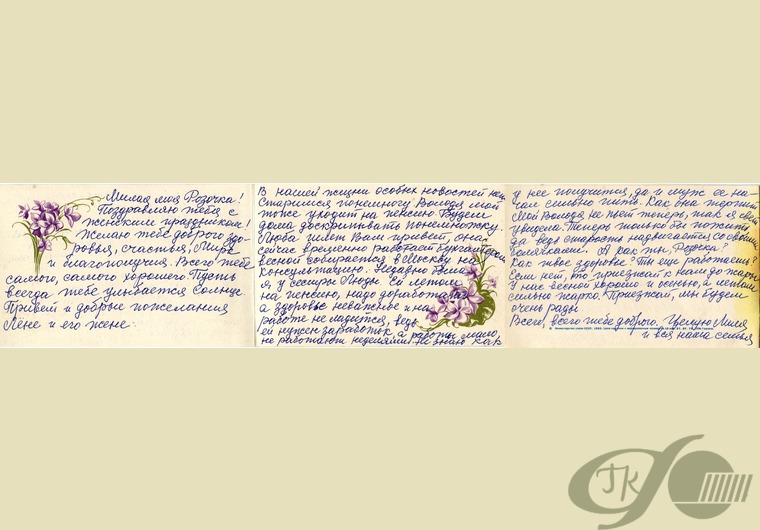 Милая моя Розочка!
Поздравляю тебя с
женским праздником!
Желаю тебе доброго здо-
ровья, счастья, мира
и благополучия. Всего тебе
самого, самого хорошего. Пусть
всегда тебе улыбается Солнце
Привет и добрые пожелания
Лене и его жене.
В нашей жизни особых новостей нет
Старимся понемногу Володя мой
тоже уходит на пенсию Будем
дома доскрипывать понемножку.
Люба шлет Вам привет, она
сейчас временно работает бухгалтером
весной собирается в Москву на
консультацию. Недавно была
я, у сестры Люды. Ей летом
на пенсию, надо доработать
а здоровье неважное и на
работе не ладится, ведь
ей нужен заработок, а работы мало,
не работают неделями. Не знаю как
у нее получится, да и муж ее на-
чал сильно пить. Как она терпит
Мой Володя не пьет теперь, так я свет
увидела. Теперь только бы пожить
да ведь старость надвигается со своими
болячками. А как ты, Розочка?
Как твое здоровье? Ты еще работаешь?
Если нет, то приезжай к нам до жары
У нас весной хорошо и осенью, а летом
сильно жарко. Приезжай, мы будем
очень рады
Всего, всего тебе доброго. Целую Лиля
и вся наша семья
ГК